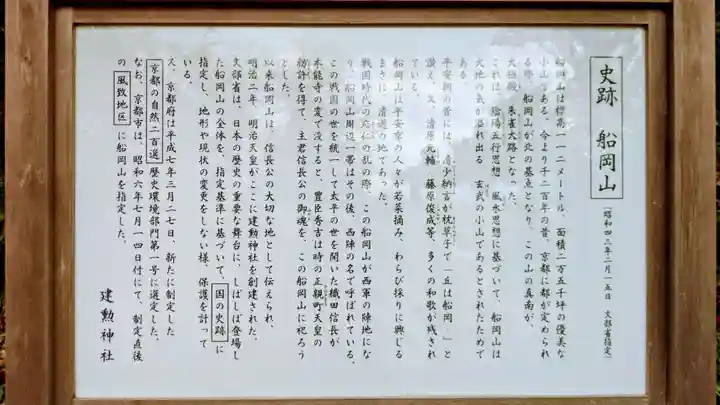 史跡 船岡山
(昭和四三年二月一五日 文部省指定)
船岡山は標高一一二メートル、面積二万五千坪の優美な
小山である。今より千二百年の昔、京都に都が定められ
る際、船岡山が北の基点となり、この山の真南が
大極殿、朱雀大路となった。
これは、陰陽五行思想、風水思想に基づいて、船岡山は
大地の気が溢れ出る 玄武の小山であるとされたためで
ある
平安朝の昔には、清少納言が枕草子で「丘は船岡…」と
讃え、又、清原元輔、藤原俊成等、多くの和歌が残され
ている。
船岡山は平安京の人々が若菜摘み、わらび採りに興じる
まさに、清遊の地であった。
戦国時代の応仁の乱の際、この船岡山が西軍の陣地にな
り、船岡山周辺一帯はその後、西陣の名で呼ばれている。
この戦国の世を統一して太平の世を開いた織田信長が
本能寺の変で没すると、豊臣秀吉は時の正親町天皇の
勅許を得て、主君信長公の御魂を、この船岡山に祀ろう
とした。
以来船岡山は、信長公の大切な地として伝えられ、
明治二年、明治天皇がここに建勲神社を創建された。
文部省は、日本の歴史の重要な舞台に、しばしば登場し
た船岡山の全体を、指定基準に基づいて、国の史跡に
指定し、地形や現状の変更をしない様、保護を計って
いる。
又、京都府は平成七年三月二七日、新たに制定した
京都の自然二百選 歴史環境部門第一号に選定した。
なお、京都市は、昭和六年七月一四日付にて、制定直後
の 風致地区 に船岡山を指定した。
建勲神社